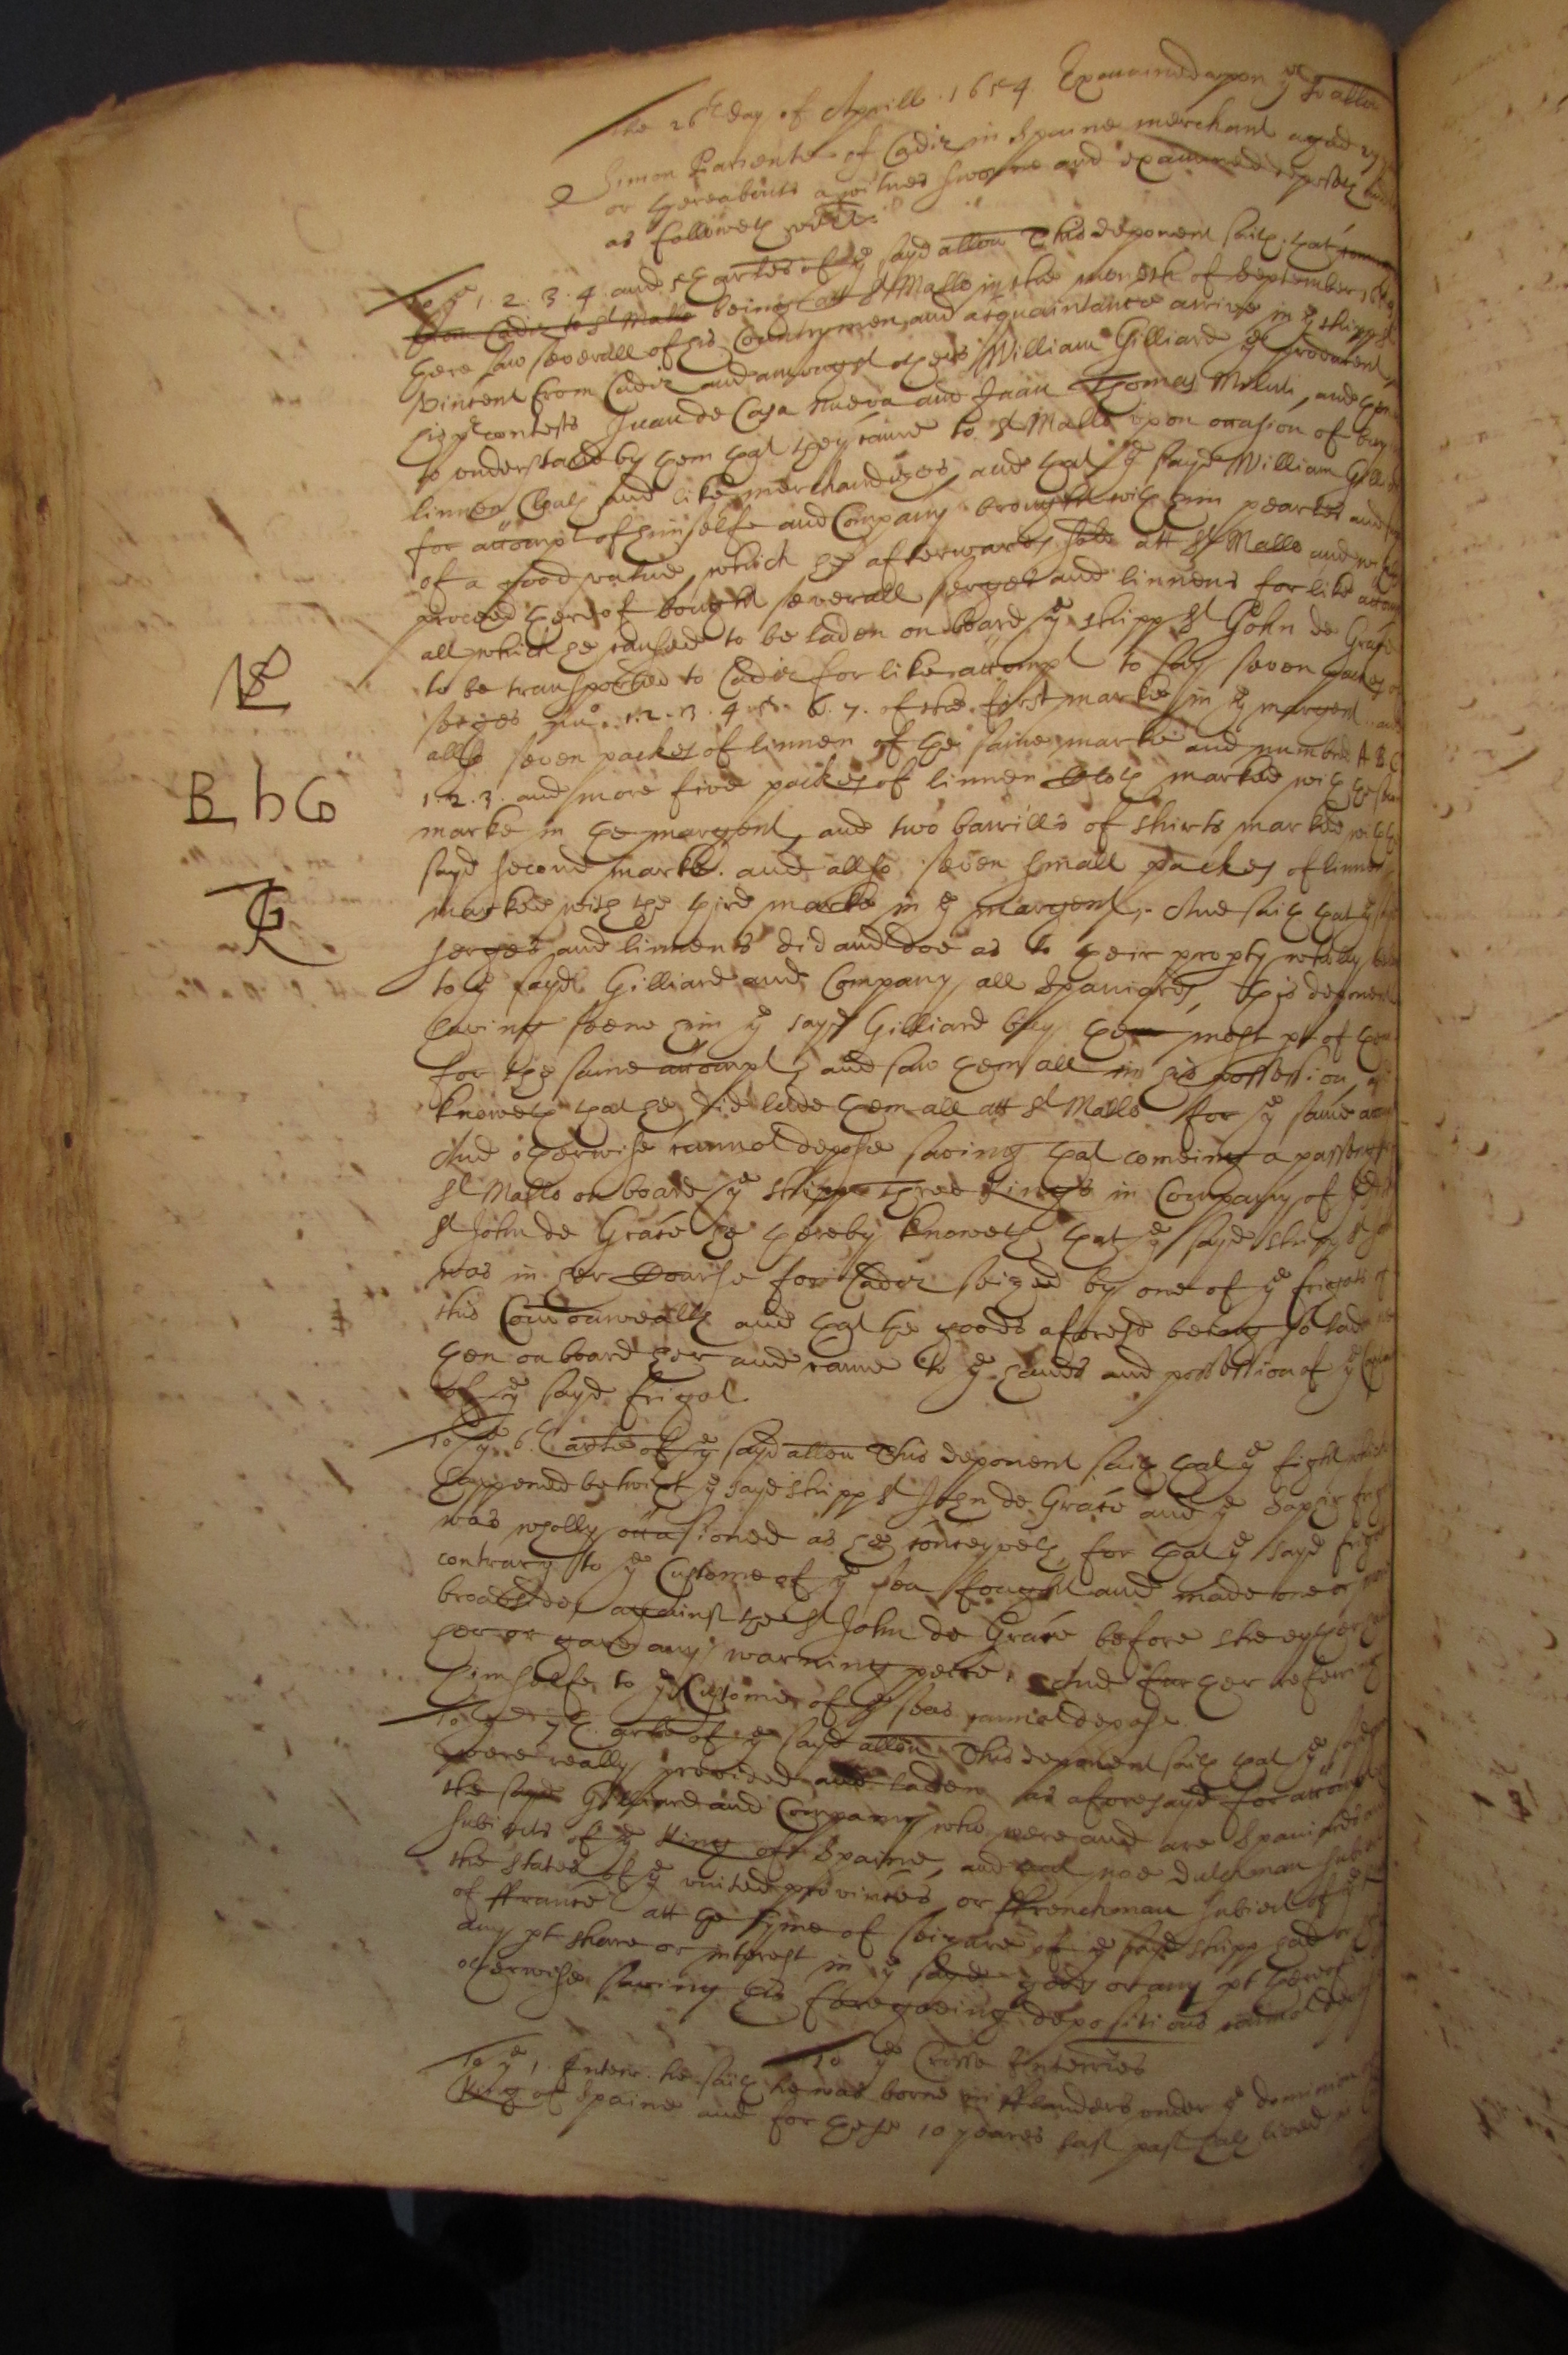 The 26th day of Aprill 1654. Examined upon ye sd allon
2 Simon Parente of Cadiz in Spaine merchant aged
or thereabouts a witnes sworne and examined deposeth
as followeth vizt.
To ye 1. 2. 3. 4 and 5th artles of ye sayd allon This deponent saith that
from Cadiz to St Malo being att St Mallo in the moneth of September
there saw severall of his Countrymen and acquaintance arrive in ye shipp St
Vincent from Cadiz and amongst others William Gilliard ye producent
his pr contests Juan de Casa Nueva and Juan Thomas Miluti, and
to understand by them that they came to St Mallo upon occasion of buying
linnen Cloath and like merchandizes, and that ye sayd William Gilliard
for accompt of himselfe and Company brought with him pearles and
of a good value, which he afterwards sold att St Mallo and with
proceed thereof bought severall serges and linnens for like accompt
all which he caused to be laden on board ye shipp St John de Grace
to be transported to Cadiz for like accompt to say seven packes of
serges nu.o 1. 2. 3. 4. 5. 6. 7. of the first marke in ye margent and
allso seven packes of linnen of the same marke and numbred A B C
1. 2. 3. and more five packes of linnen Cloth marked with the second
marke in the margent, and two barrills of shirts marked with the
sayd second marke. and allso seven small packes of linnen
marked with the third marke in ye margent,. And saith that ye sayd
serges and linnens did and doe as to their propty totally
to ye sayd Gilliard and Company, all Spaniards, This deponent
having seene him ye sayd Gilliard buy the most pt of them
for the same accompt, and saw them all in his possession,
knoweth that he did lade them all att St Mallo for ye same accompt
And otherwise cannot depose saving that comeing a passenger
St Mallo on board ye shipp three Kings in Company of ye sd
St John de Grace he thereby knoweth that ye sayd shipp St John
was in her Course for Cadiz seized by one of ye frigots of
this Commonwealth and that the goods aforesd being so laden
then on board her and came to ye hands and possession of ye Captaine
of ye sayd frigot
To ye 6th artle of ye sayd allon This deponent saith that ye fight which
happened betwixt ye sayd shipp St John de Grace and ye Saphir frigot
was wholly occasioned as he conceyveth, for that ye sayd frigot
contrary to ye Custome of ye sea fought and made one or
broadsides against the St John de Grace before she eyther
her or gave any warning peece, And further referring
himselfe to ye Customes of ye seas cannot depose
To ye 7th. artle of ye sayd allon This deponent saith that ye sayd
were really provided and laden as aforesayd for accompt
the sayd Gilliard and Company who were and are Spaniards and
subiects of ye King of Spaine, and that noe Dutchman subiect
the States of ye united provinces or ffrenchman subiect of ye
of ffrance att the tyme of seizure of ye sayd shipp had
any pt share or interest in ye sayd goods or any pt thereof
otherwise saving his foregoeing depositions cannot depose
To ye Crosse Interries
To ye 1. Interr. he saith he was borne in fflanders under ye dominion
King of Spaine and for these 10 yeares last past hath lived
B h G